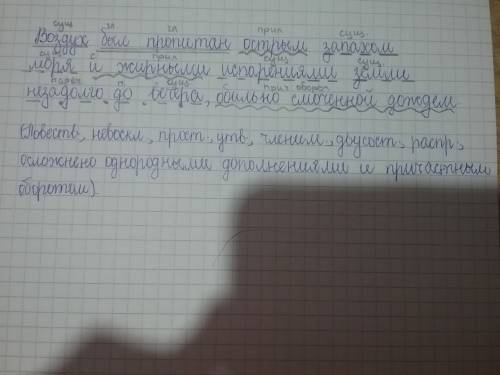 сущ. гл гл прил сущ.
Воздух был пропитан острым запахом
сущ. с прил сущ сущ.
моря и жирными испарениями земли
нареч п. сущ прич оборот
незадолго до вечера, обильно смоченной дождем
(Повеств, невоскл, прост, утв, членим, двусост, распр,
осложнено однородными дополнениями и причастным
оборотом).